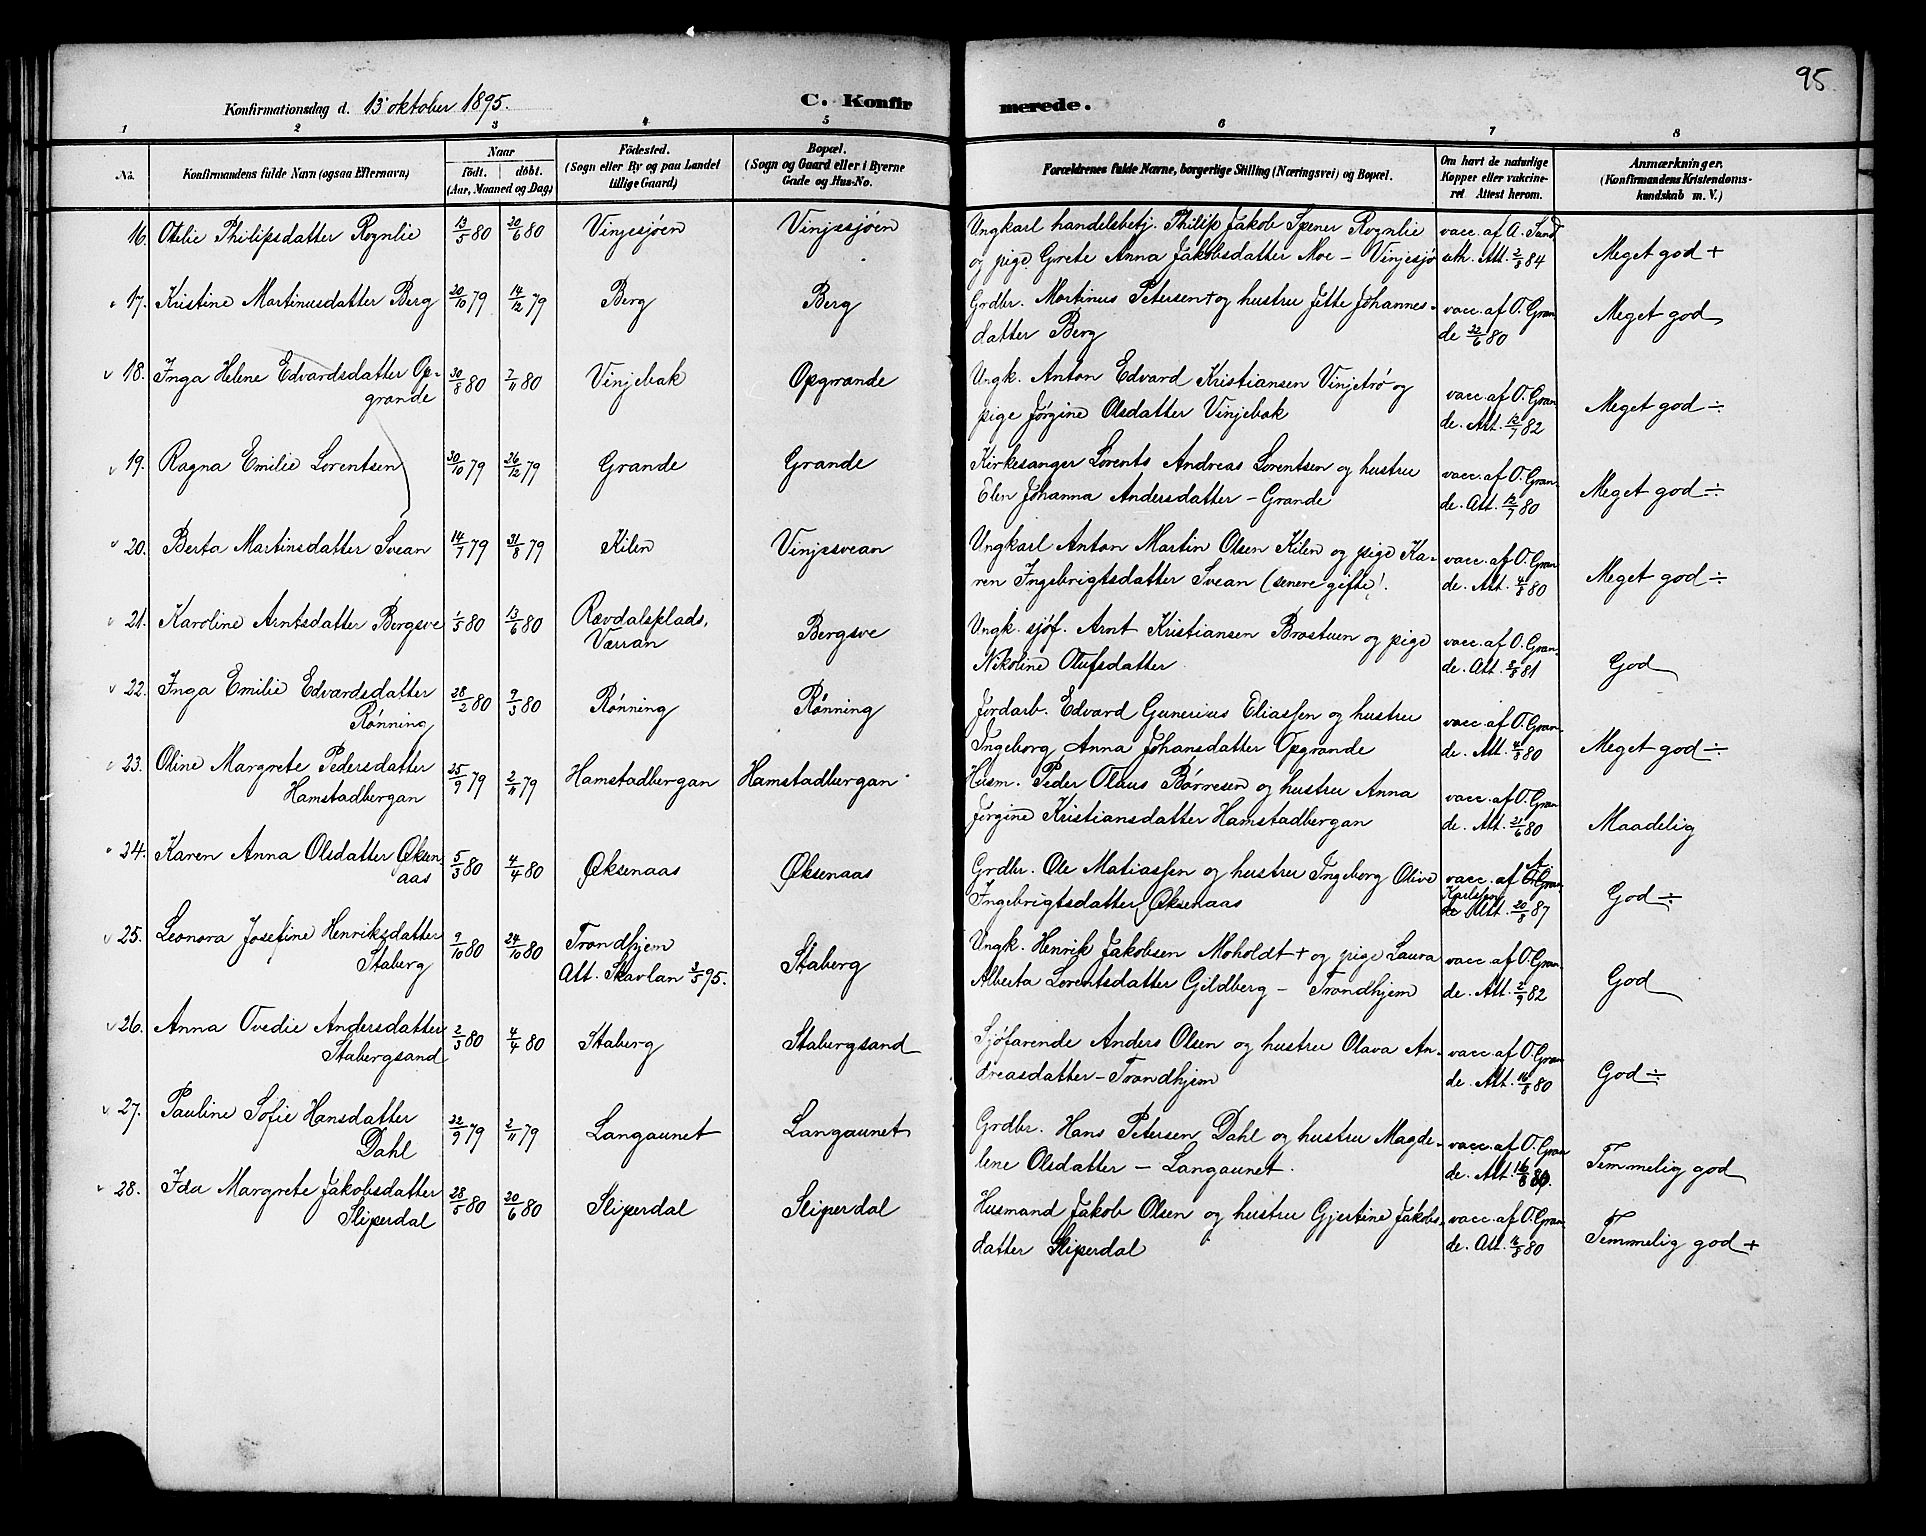 95.
Konfirmationsdag d. 13 oktober 1895.
C. Konfirmerede.
1 2 3 4 5 6 7 8
No.
Konfirmandens fulde Navn (ogsaa Efternavn)
Naar
födt. döbt.
(Aar, Maaned og Dag)
Födested.
(Sogn eller By og paa Landet
tillige Gaard)
Bopæl.
(Sogn og Gaard eller i Byerne
Gade og Hus-No.
Forældrenes fulde Navne, borgerlige Stilling (Næringsvei) og Bopæl.
Om havt de naturlige
Kopper eller vakcine-
ret. Attest herom.
Anmærkninger.
(Konfirmandens Kristendoms-
kundskab m. V.)
16. Otelie Philipsdatter Rognlie 13/5 80 20/6 80 Vinjesjøen Vinjesjøen
Ungkarl handelsbetj. Philip Jakob Spener Rognlie
og pige Grete Anna Jakobsdatter Moe – Vinjesjø
vacc. af A. Sand
seth. Att. 2/8 84
Meget god +
17. Kristine Martinusdatter Berg 20/10 79 14/12 79 Berg Berg
Grdbr. Martinus Petersen + og hustru Jette Johannes-
datter Berg
vacc. af O. Gran
de 22/6 80
Meget god
18. Inga Helene Edvardsdatter Op-
grande
30/8 80 7/11 80 Vinjebak Opgrande
Ungk. Anton Edvard Kristiansen Vinjetrø og
pige Jørgine Olsdatter Vinjebak
vacc. af O. Gran
de. Att. 12/7 82
Meget god ÷
19. Ragna Emilie Lorentsen 30/10 79 26/12 79 Grande Grande
Kirkesanger Lorents Andreas Lorentsen og hustru
Elen Johanna Andersdatter – Grande
vacc. af O. Gran-
de. Att. 12/7 80
Meget god ÷
20. Berta Martinsdatter Svean 14/7 79 31/8 79 Kilen Vinjesvean
Ungkarl Anton Martin Olsen Kilen og pige Ka-
ren Ingebrigtsdatter Svean (senere gifte)!
vacc. af O. Gran
de. Att. 4/8 80
Meget god ÷
21. Karoline Arntsdatter Bergsve 1/5 80 13/6 80 Rævdalsplads,
Værran
Bergsve
Ungk. sjøf. Arnt Kristiansen Brostuen og pige
Nikoline Olufsdatter
vacc. af O. Gran-
de. Att. 2/8 81
God
22. Inga Emilie Edvardsdatter
Rønning
28/2 80 9/3 80 Rønning Rønning
Jordarb. Edvard Gunerius Eliassen og hustru
Ingeborg Anna Johansdatter Opgrande
vacc. af O. Gran
de. Att. 4/8 80
Meget god ÷
23. Oline Margrete Pedersdatter
Hamstadbergan
25/9 79 2/11 79 Hamstadbergan Hamstadbergan
Husm. Peder Olaus Børresen og hustru Anna
Jørgine Kristiansdatter Hamstadbergan
vacc. af O. Gran
de. Att. 21/6 80
Maadelig
24. Karen Anna Olsdatter Øksen
aas
5/3 80 4/4 80 Øksenaas Øksenaas
Grdbr. Ole Matiassen og hustru Ingeborg Olive
Ingebrigtsdatter Øksenaas
vacc. af A.
Karlsson
Att. 20/8 87
God ÷
25. Leonora Josefine Henriksdatter
Staberg
9/10 80 24/10 80 Trondhjem
Att. Skavlan 3/5 95.
Staberg
Ungk. Henrik Jakobsen Moholdt + og pige Laura
Alberta Lorentsdatter Gildberg – Trondhjem
vacc. af O. Gran-
de. Att. 2/9 82
God
26. Anna Ovedie Andersdatter
Stabergsand
2/3 80 4/4 80 Staberg Stabergsand
Sjøfarende Anders Olsen og hustru Olava An-
dreasdatter – Trondhjem
vacc. af O. Gran
de. Att. 16/8 80
God ÷
27. Pauline Sofie Hansdatter
Dahl
22/9 79 2/11 79 Langaunet Langaunet
Grdbr. Hans Petersen Dahl og hustru Magde-
lene Olsdatter – Langaunet.
vacc. af O. Gran
de. Att. 16/8 80.
Temmelig god
28. Ida Margrete Jakobsdatter
Sliperdal
28/5 80 20/6 80 Sliperdal Sliperdal
Husmand Jakob Olsen og hustru Gjertine Jakobs-
datter Sliperdal
vacc. af O. Gran-
de. Att. 11/8 80
Temmelig god +